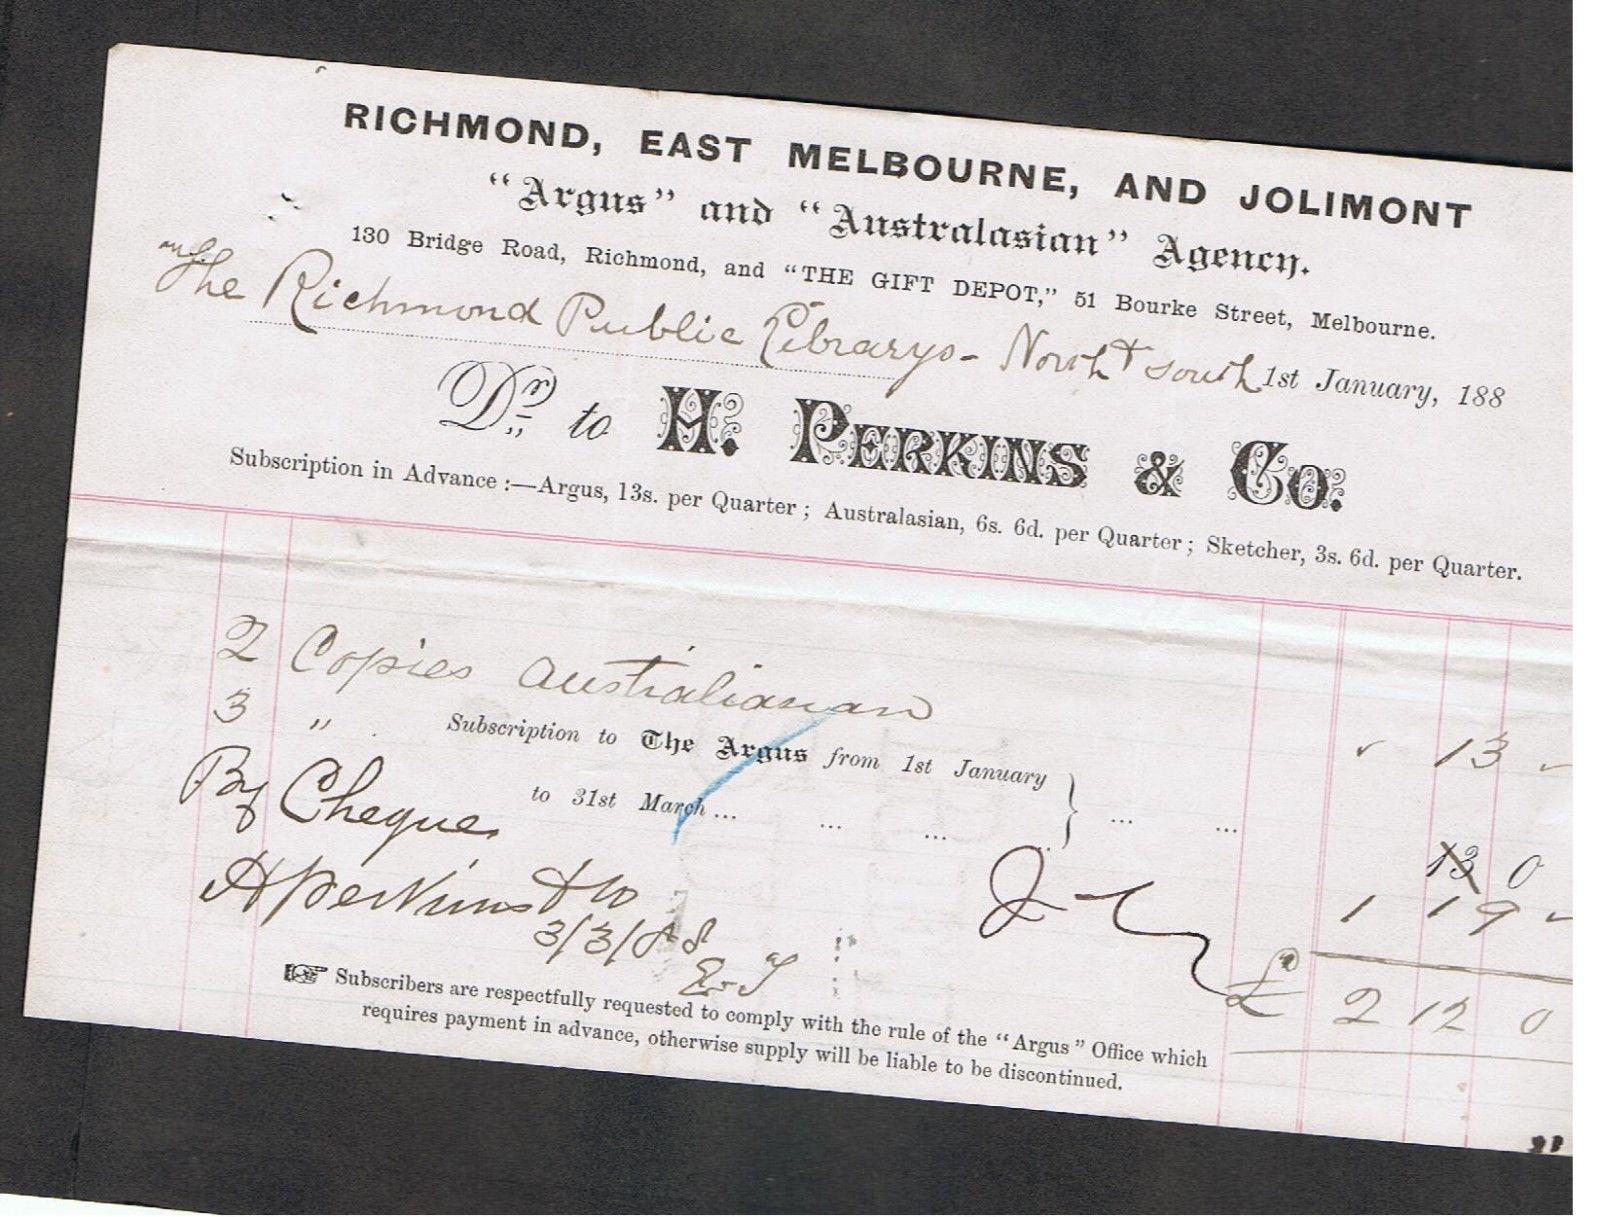 RICHMOND, EAST MELBOURNE, AND JOLIMONT
"Argus" and "Australasian" Agency.
130 Bridge Road, Richmond, and "THE GIFT DEPOT," 51 Bourke Street, Melbourne.
The Richmond Public Librarys - North & South 1st January, 188
Dr. to H. PERKINS & Co.
Subscription in Advance :—Argus, 13s. per Quarter ; Australasian, 6s. 6d. per Quarter ; Sketcher, 3s. 6d. per Quarter.
2 Copies Australianan 13
3 " Subscription to The Argus from 1st January
to 31st March... ... ... ... ...
13 0
1 19
By Cheque
H Perkins & Co
3/3/88
£ 2 12 0
☞ Subscribers are respectfully requested to comply with the rule of the "Argus" Office which
requires payment in advance, otherwise supply will be liable to be discontinued.